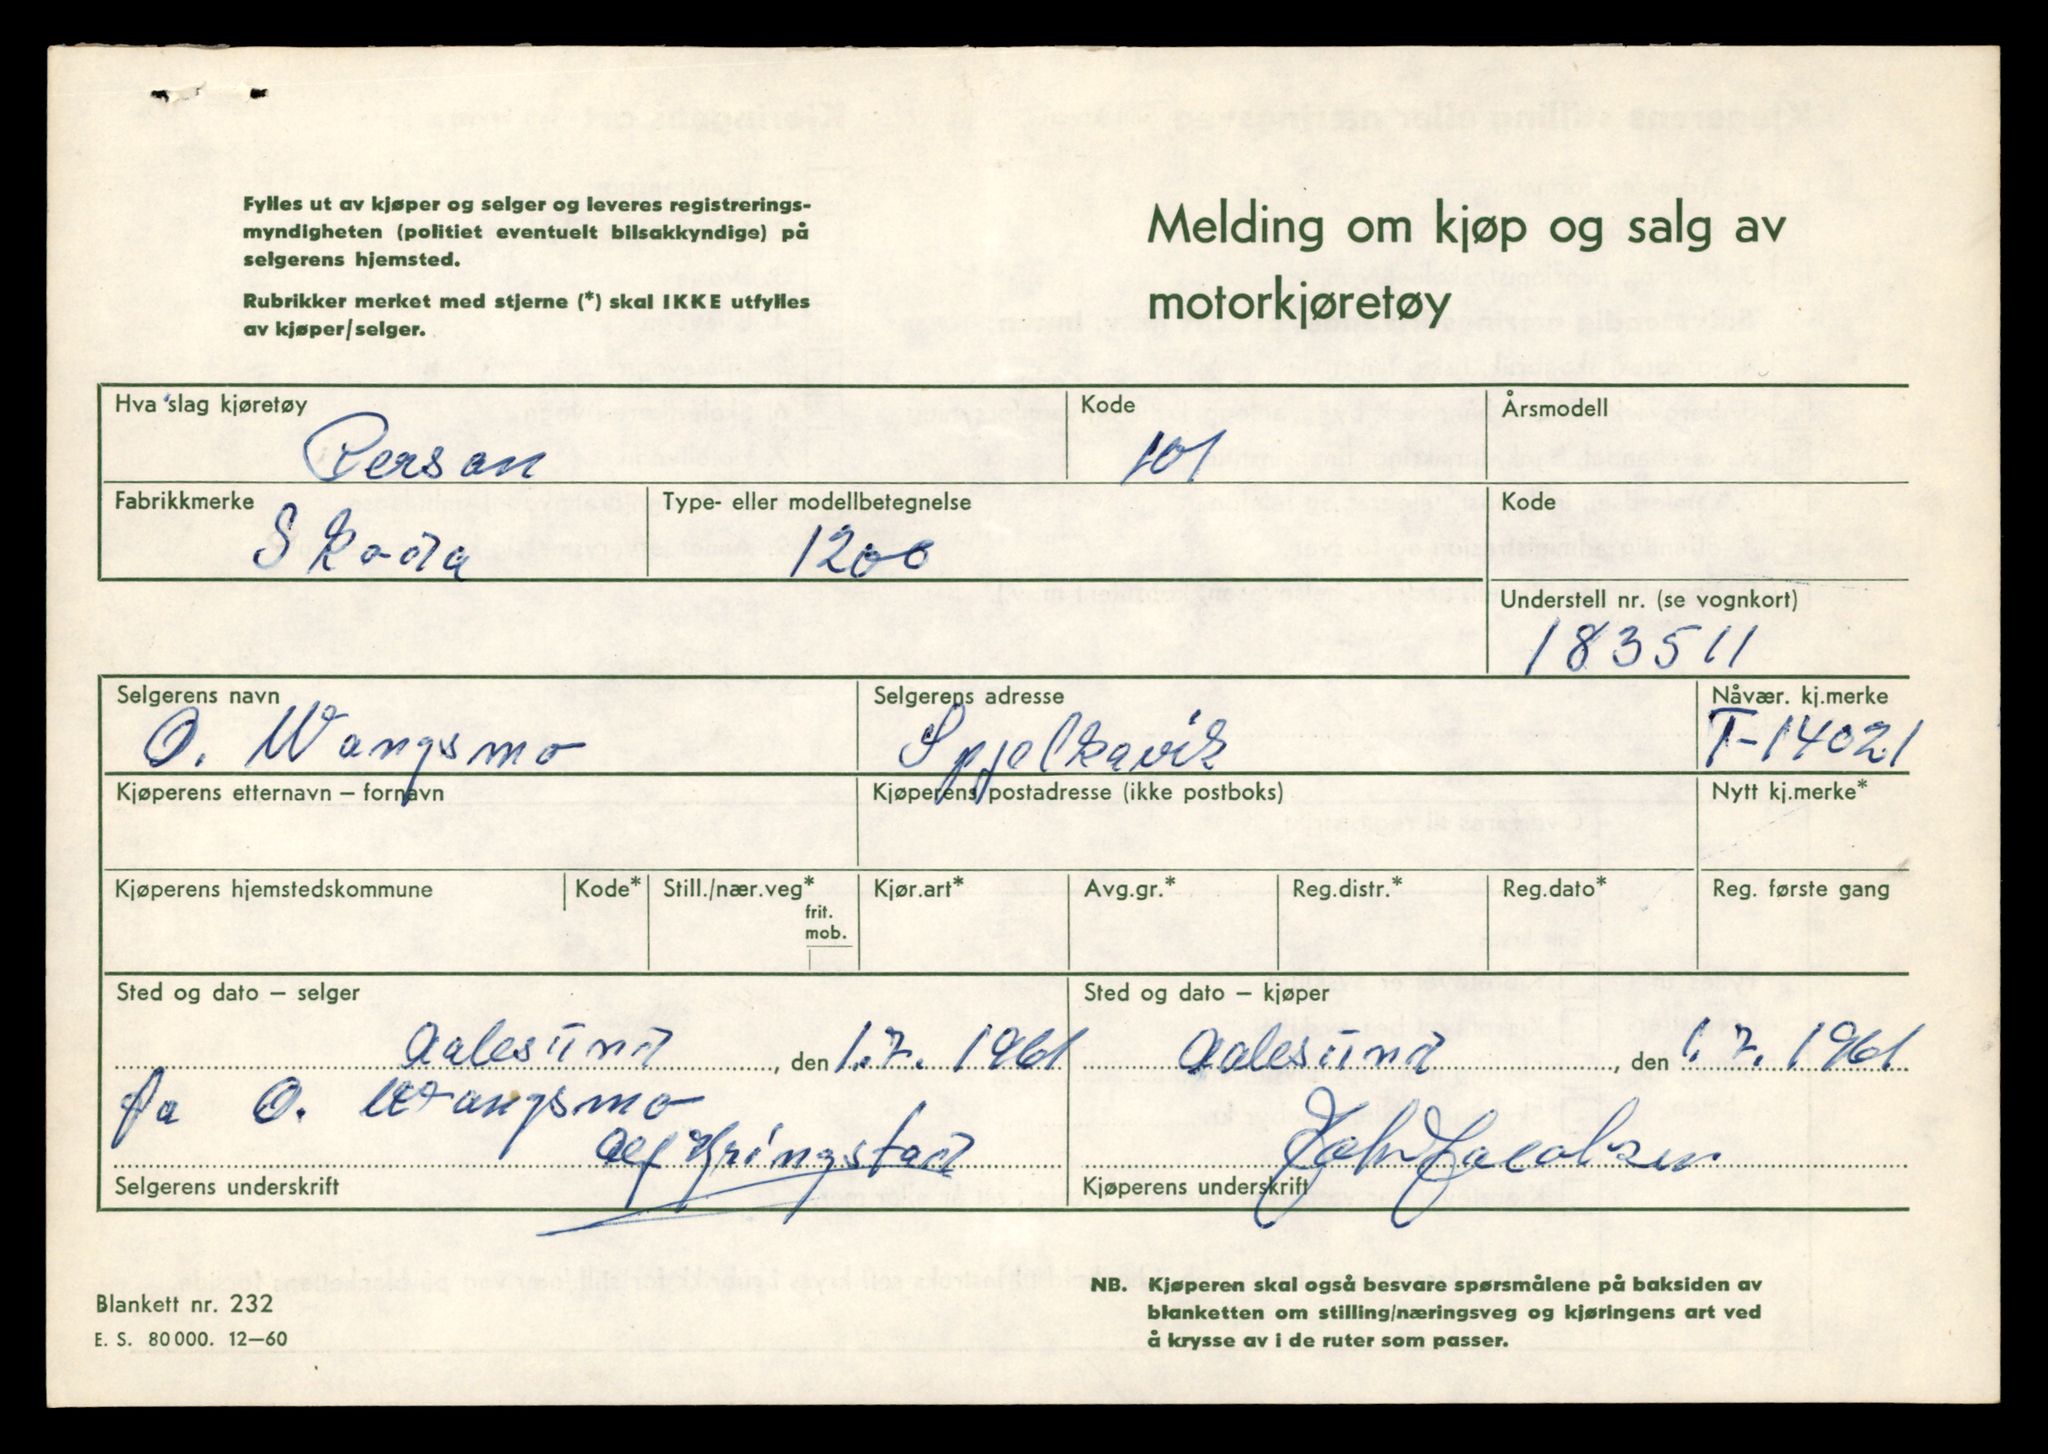 Fylles ut av kjøper og selger og leveres registrerings-
myndigheten (politiet eventuelt bilsakkyndige) på
selgerens hjemsted.
Rubrikker merket med stjerne (*) skal IKKE utfylles
av kjøper/selger.
Melding om kjøp og salg av
motorkjøretøy
Hva slag kjøretøy
Person
Kode
101
Årsmodell
Fabrikkmerke
Skoda
Type- eller modellbetegnelse
1200
Kode
Understell nr. (se vognkort)
183511
Selgerens navn
O. Wangsmo
Selgerens adresse
Spjelkavik
Nåvær. kj.merke
T-14021
Kjøperens etternavn – fornavn
Kjøperens postadresse (ikke postboks)
Nytt kj.merke*
Kjøperens hjemstedskommune
Kode*
Still./nær.veg*
frit.
mob.
Kjør.art*
Avg.gr.*
Reg.distr.*
Reg.dato*
Reg. første gang
Sted og dato – selger
Aalesund, den 1.7. 1961
fa O. Wangsmo
Alf Kringstad
Selgerens underskrift
Sted og dato – kjøper
Aalesund, den 1.7. 1961
John Jacobsen
Kjøperens underskrift
Blankett nr. 232
E. S. 80 000. 12—60
NB. Kjøperen skal også besvare spørsmålene på baksiden av
blanketten om stilling/næringsveg og kjøringens art ved
å krysse av i de ruter som passer.